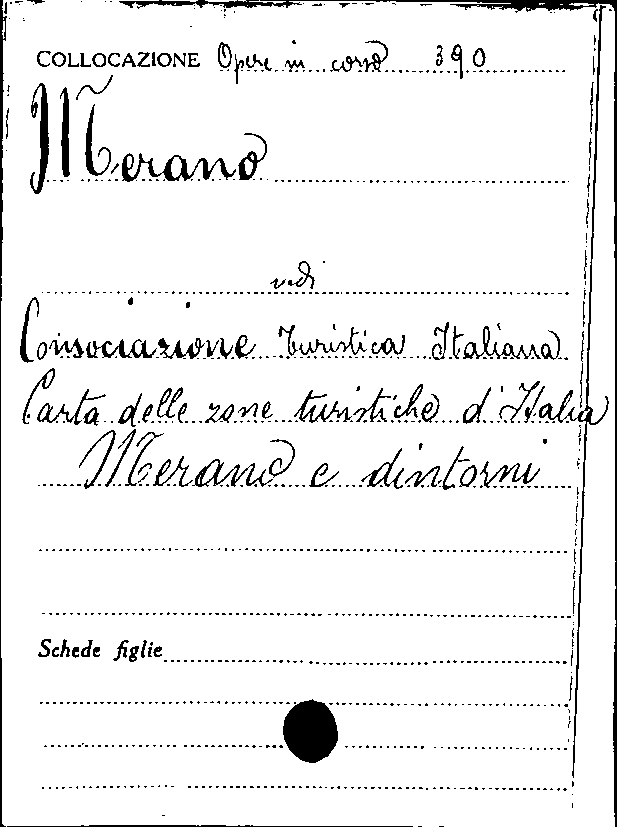 COLLOCAZIONE Opere in corso 390
Merano
vedi
Consociazione Turistica Italiana
Carta delle zone turistiche d'Italia
Merano e dintorni
Schede figlie